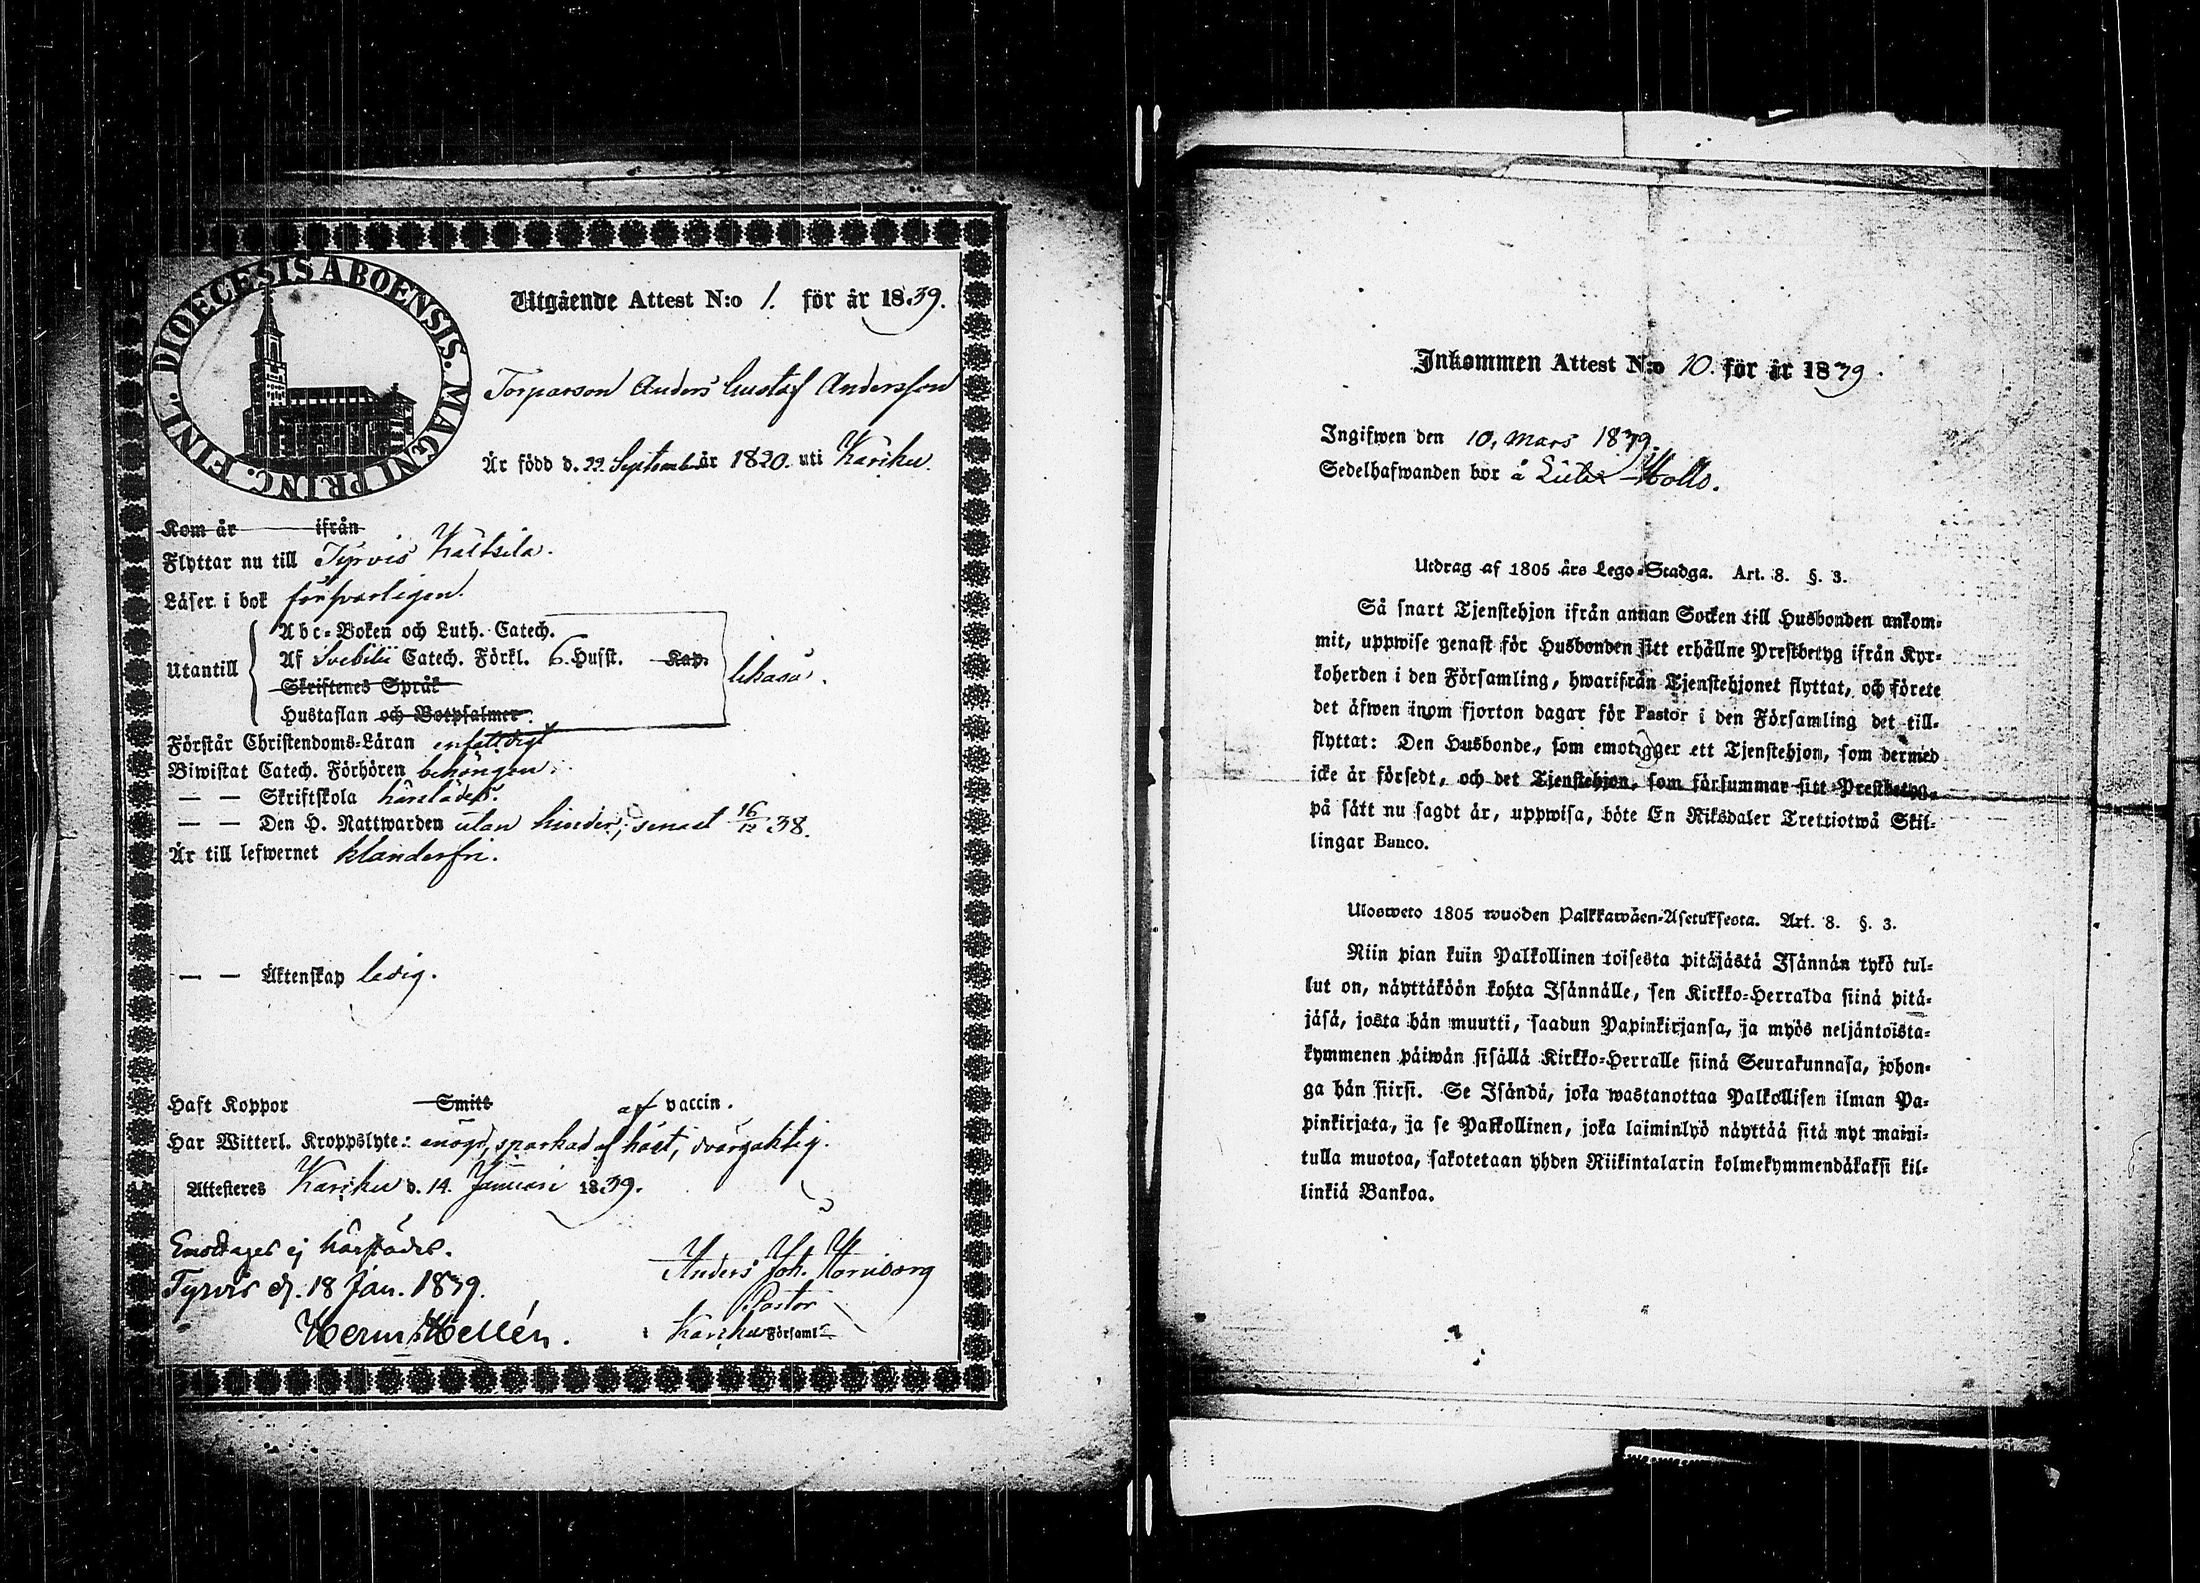 DIOECESIS ABOENSIS. MAGNI PRINC. FINL.
Utgående Attest N:o 1. för år 1839.
Torparson Anders Gustaf Andersson
Är född d. 22 Septemb. år 1820. uti Karkku.
Kom år ifrån
Flyttar nu till Tyrvis Kaltsila.
Läser i bok försvarligen.
Abc-Boken och Luth. Catech.
Utantill Af Svebilii Catech. Förkl. 6. Hufst. Kap.
Skriftenes Språk
Hustaflan och Botpsalmer.
Förstår Christendoms-Läran enfaldigt
Biwistat Catech. Förhören behörigen.
— — Skriftskola härstädes.
— — Den H. Nattwarden utan hinder, senast 16/12 38.
Är till lefwernet klanderfri.
— — Äktenskap ledig.
Haft Koppor Smitt af vaccin.
Har Witterl. Kroppslyte: enögd, sparkad af häst, dvärgaktig.
Attesteres Karkku d. 14. Januari 1839.
Emottages ej härstädes.
Tyrvis d. 18 Jan. 1839.
Herm. Hellén.
Anders Joh. Hornborg
Pastor
i Karkku Församl.
Inkommen Attest N:o 10. för år 1839.
Ingifwen den 10. Mars 1839.
Sedelhafwanden bor å
Utdrag af 1805 års Lego-Stadga. Art. 8. §. 3.
Så snart Tjenstehjon ifrån annan Socken till Husbonden ankom-
mit, uppwise genast för Husbonden sitt erhållne Prestbetyg ifrån Kyr-
koherden i den Församling, hwarifrån Tjenstehjonet flyttat, och förete
det äfwen inom fjorton dagar för Pastor i den Församling det till-
flyttat: Den Husbonde, som emotager ett Tjenstehjon, som dermed
icke är försedt, och det Tjenstehjon, som försummar sitt Prestbetyg,
på sätt nu sagdt är, uppwisa, böte En Riksdaler Trettiotwå Skil-
lingar Banco.
Ulosweto 1805 wuoden Palkkawäen-Asetuksesta. Art. 8. §. 3.
Niin pian kuin Palkollinen toisesta pitäjästä Isännän tykö tul-
lut on, näyttäköön kohta Isännälle, sen Kirkko-Herralda siinä pitä-
jäsä, josta hän muutti, saadun Papinkirjansa, ja myös neljäntoista-
kymmenen päiwän sisällä Kirkko-Herralle siinä Seurakunnasa, johon-
ga hän siirsi. Se Isändä, joka wastanottaa Palkollisen ilman Pa-
pinkirjata, ja se Palkollinen, joka laiminlyö näyttää sitä nyt maini-
tulla muotoa, sakotetaan yhden Riikintalarin kolmekymmendäkaksi kil-
linkiä Bankoa.